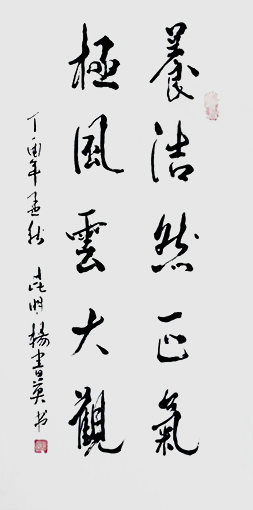 養浩然正氣
極風雲大觀
丁酉年孟秋 昆明楊書英书